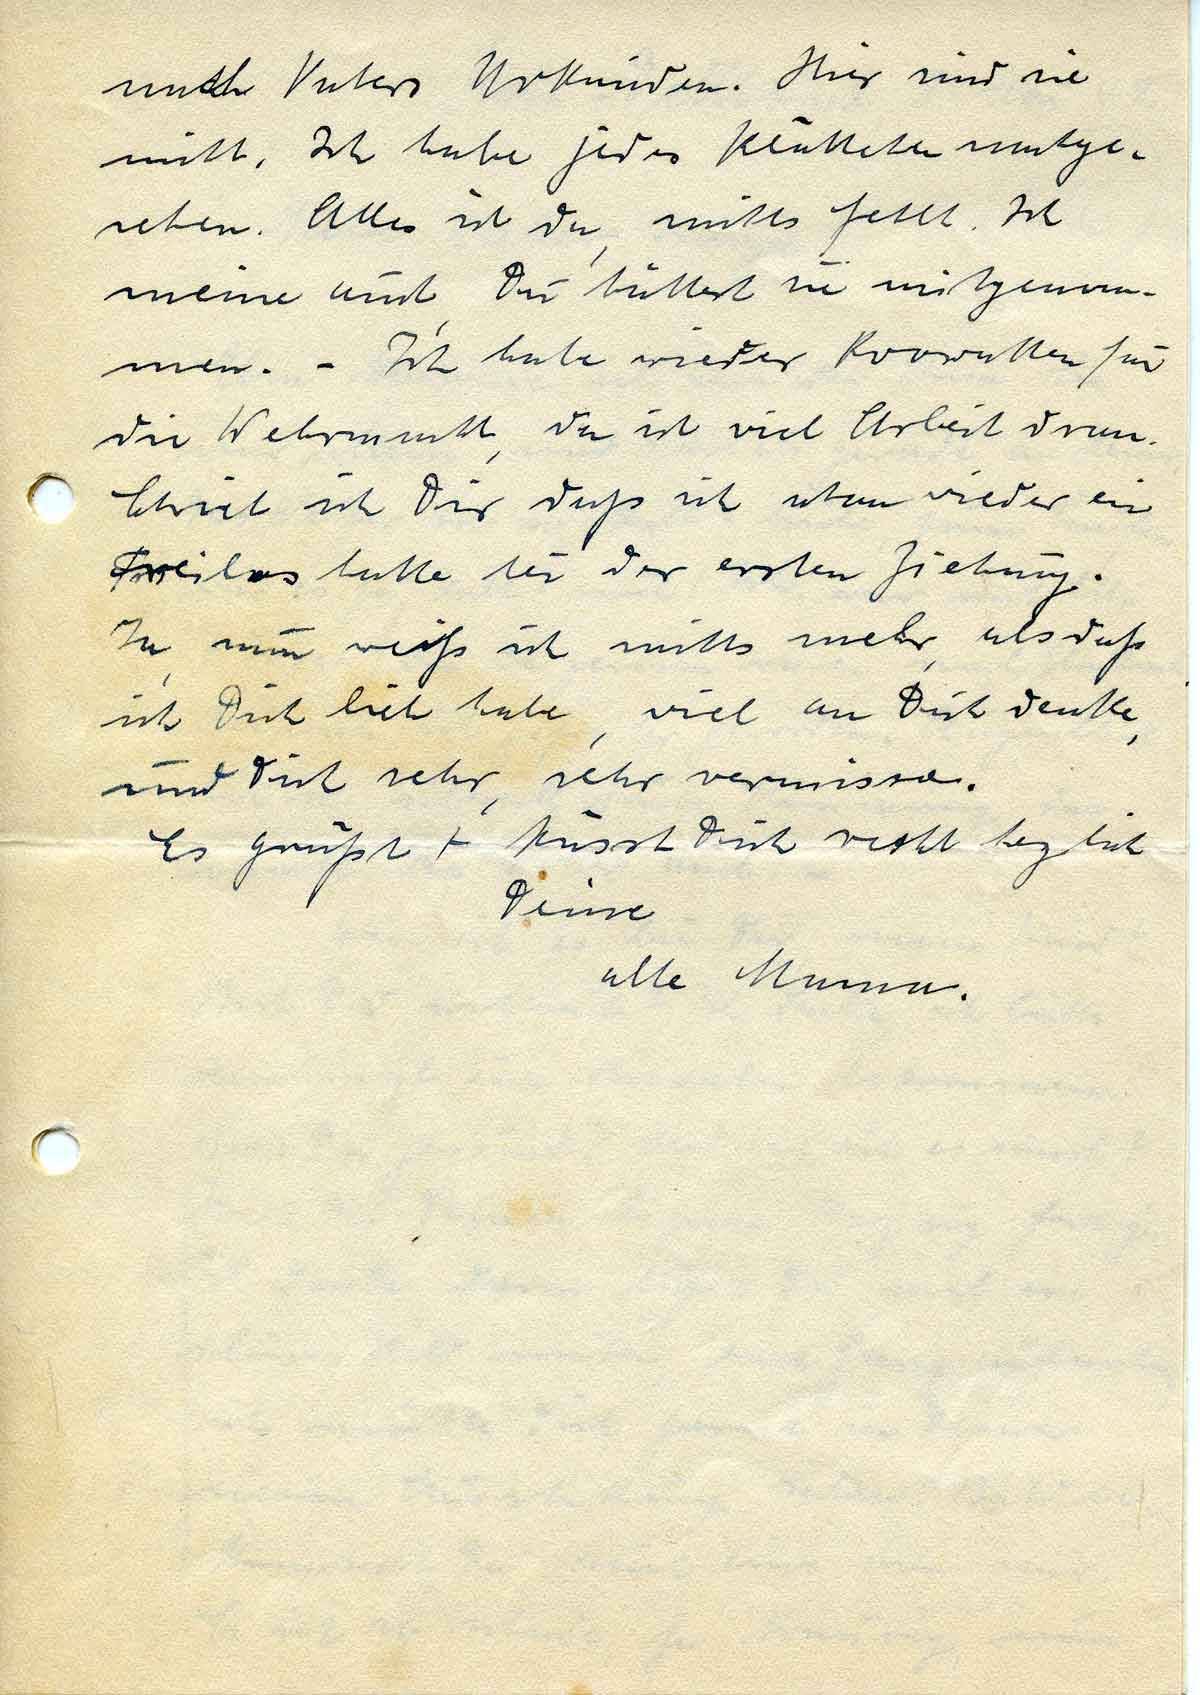 nach Vaters Urkunden. Hier sind sie
nicht. Ich habe jedes Blättchen nachge-
sehen. Alles ist da, nichts fehlt. Ich
meine auch, Du hättest sie mitgenom-
men. - Ich habe wieder Krawatten für
die Wehrmacht, da ist viel Arbeit dran.
Schrieb ich Dir daß ich schon wieder ein
Freilos hatte bei der ersten Ziehung.
Ja, nun weiß ich nichts mehr, als daß
ich Dich lieb habe, viel an Dich denke,
und Dich sehr, sehr vermisse.
Es grüßt + küsst Dich recht herzlich
Deine
alte Mama.